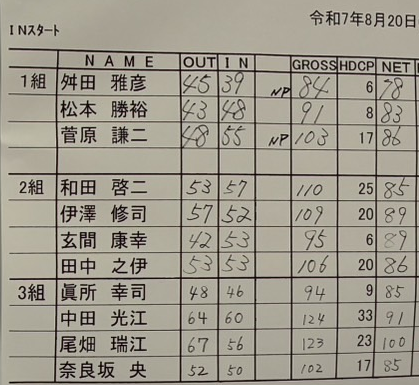 令和7年8月20日
INスタート
NAME OUT IN GROSS HDCP NET
1組 舛田 雅彦 45 39 NP 84 6 78
松本 勝裕 43 48 91 8 83
菅原 謙二 48 55 NP 103 17 86
2組 和田 啓二 53 57 110 25 85
伊澤 修司 57 52 109 20 89
玄間 康幸 42 53 95 6 89
田中 之伊 53 53 106 20 86
3組 眞所 幸司 48 46 94 9 85
中田 光江 64 60 124 33 91
尾畑 瑞江 67 56 123 23 100
奈良坂 央 52 50 102 17 85